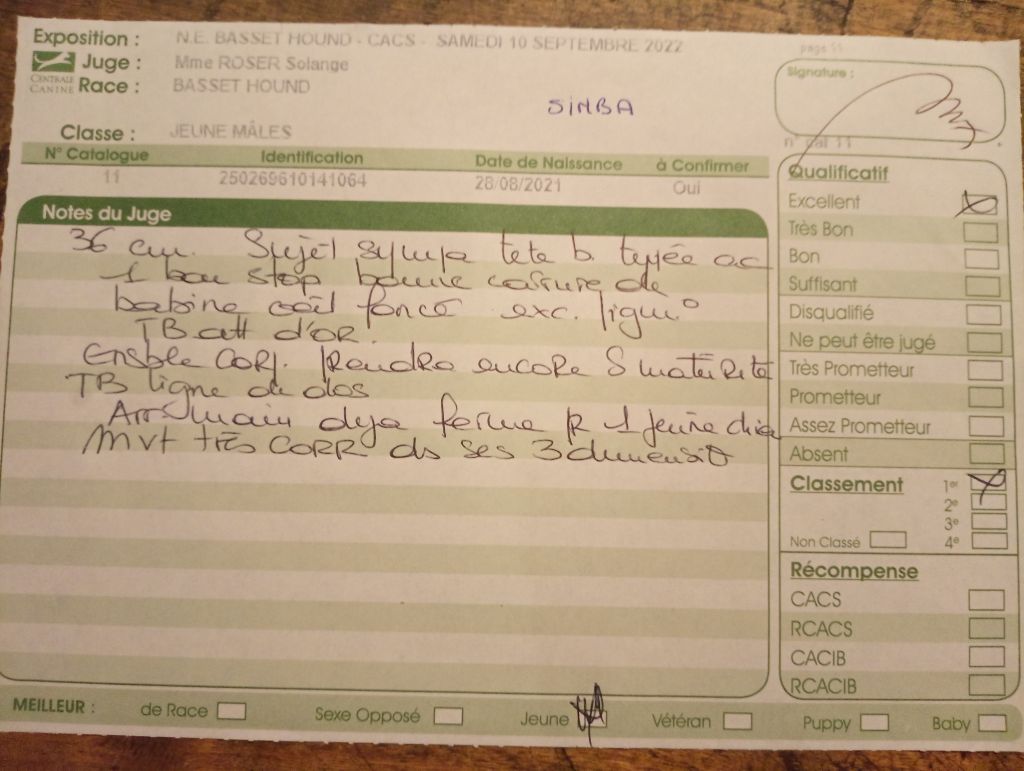 Exposition : N.E. BASSET HOUND - CACS - SAMEDI 10 SEPTEMBRE 2022
page 11
Juge : Mme ROSER Solange
CENTRALE CANINE
Race : BASSET HOUND
SIMBA
Signature :
Classe : JEUNE MÂLES
N° Catalogue Identification Date de Naissance à Confirmer
11 250269610141064 28/08/2021 Oui
Notes du Juge
36 cm. Sujet sympa tete b. typée ac
1 bon stop bonne de
babine oeil foncé exc. pigm°
TB att d'OR.
Enseble CORR. prendra encore S maturité
TB ligne de dos
Arr main deja ferme pr 1 jeune chien
Mvt très CORR ds ses 3 dimensi°
Qualificatif
Excellent
Très Bon
Bon
Suffisant
Disqualifié
Ne peut être jugé
Très Prometteur
Prometteur
Assez Prometteur
Absent
Classement 1er
2e
3e
Non Classé 4e
Récompense
CACS
RCACS
CACIB
RCACIB
MEILLEUR : de Race Sexe Opposé Jeune Vétéran Puppy Baby